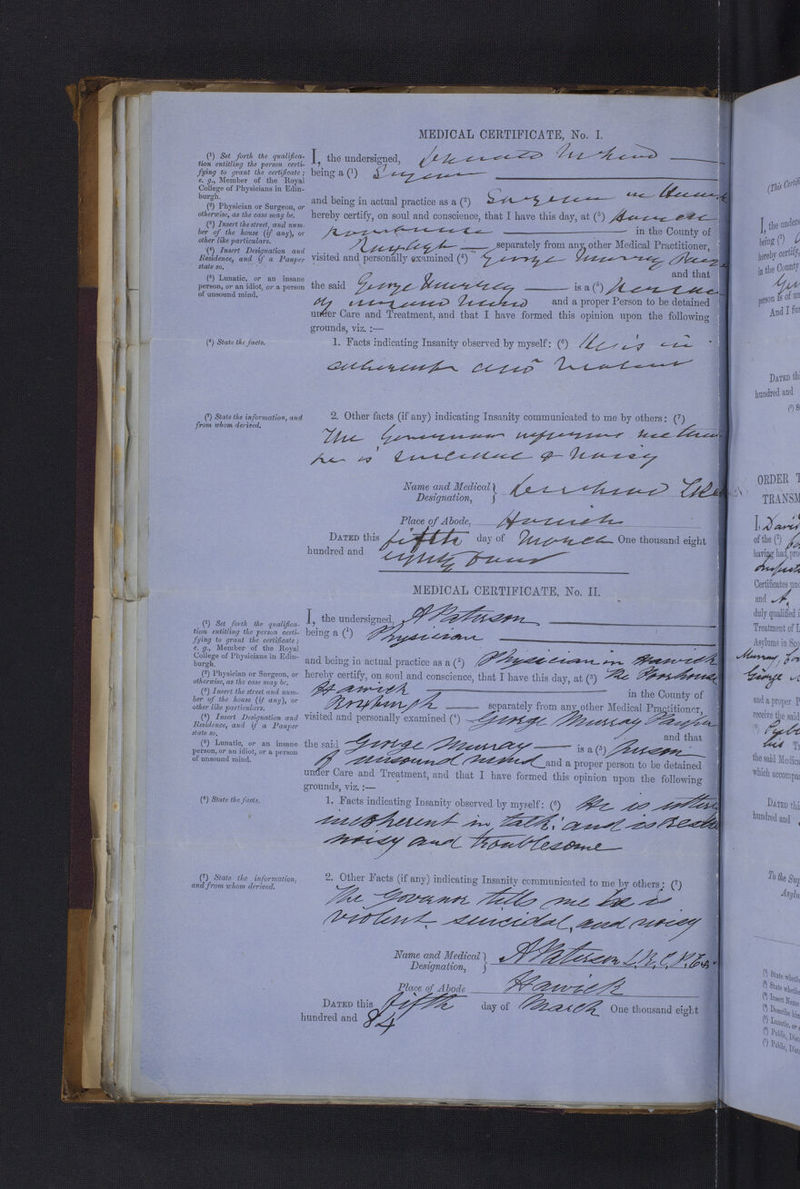 MEDICAL CERTIFICATE, No. I.
(¹) Set forth the qualifica-
tion entitling the person certi-
fying to grant the certificate;
e. g., Member of the Royal
College of Physicians in Edin-
burgh.
(²) Physician or Surgeon, or
otherwise, as the case may be.
(³) Insert the street, and num-
ber of the house (if any), or
other like particulars.
(⁴) Insert Designation and
Residence, and if a Pauper
state so.
(⁵) Lunatic, or an insane
person, or an idiot, or a person
of unsound mind.
I, the undersigned,
being a (¹) Surgeon
and being in actual practice as a (²) Surgeon in Hawick
hereby certify, on soul and conscience, that I have this day, at (³) Hawick
Poorhouse in the County of
Roxburgh separately from any other Medical Practitioner,
visited and personally examined (⁴) George Murray
and that
the said George Murray is a (⁵) Person
of unsound Mind and a proper Person to be detained
under Care and Treatment, and that I have formed this opinion upon the following
grounds, viz. :—
(⁶) State the facts.
1. Facts indicating Insanity observed by myself: (⁶) He is in
coherent and violent
(⁷) State the information, and
from whom derived.
2. Other facts (if any) indicating Insanity communicated to me by others: (⁷)
The Governor me that
he is suicidal & noisy
Name and Medical
Designation,
Place of Abode, Hawick
DATED this fifth day of March One thousand eight
hundred and eighty four
MEDICAL CERTIFICATE, No. II.
(¹) Set forth the qualifica-
tion entitling the person certi-
fying to grant the certificate;
e. g., Member of the Royal
College of Physicians in Edin-
burgh.
(²) Physician or Surgeon, or
otherwise, as the case may be.
(³) Insert the street and num-
ber of the house (if any), or
other like particulars.
(⁴) Insert Designation and
Residence, and if a Pauper
state so.
(⁵) Lunatic, or an insane
person, or an idiot, or a person
of unsound mind.
I, the undersigned, A Paterson
being a (¹) Physician
and being in actual practice as a (²) Physician in Hawick
hereby certify, on soul and conscience, that I have this day, at (³) The Poorhouse
Hawick in the County of
Roxburgh separately from any other Medical Practitioner,
visited and personally examined (⁴) George Murray Pauper
and that
the said George Murray is a (⁵) person
of unsound mind and a proper person to be detained
under Care and Treatment, and that I have formed this opinion upon the following
grounds, viz. :—
(⁶) State the facts.
1. Facts indicating Insanity observed by myself: (⁶) He is
incoherent in talk: and is
noisy and troublesome
(⁷) State the information,
and from whom derived.
2. Other Facts (if any) indicating Insanity communicated to me by others: (⁷)
The Governor tells me he is
violent suicidal, and noisy
Name and Medical
Designation, A Paterson L.R.C.P. Ed
Place of Abode Hawick
DATED this fifth day of March One thousand eight
hundred and 84
I, the under
being (¹)
hereby certify,
in the County
person
And I fur
DATED thi
hundred and
ORDER T
TRANSM
I, David
of the (¹)
having had
Certificates
and A.
duly qualified
Treatment of L
Asylums in
Murray,
George
and a proper P
receive the said
the said Medica
which accompa
DATED thi
hundred and
To the Sup
Asylu